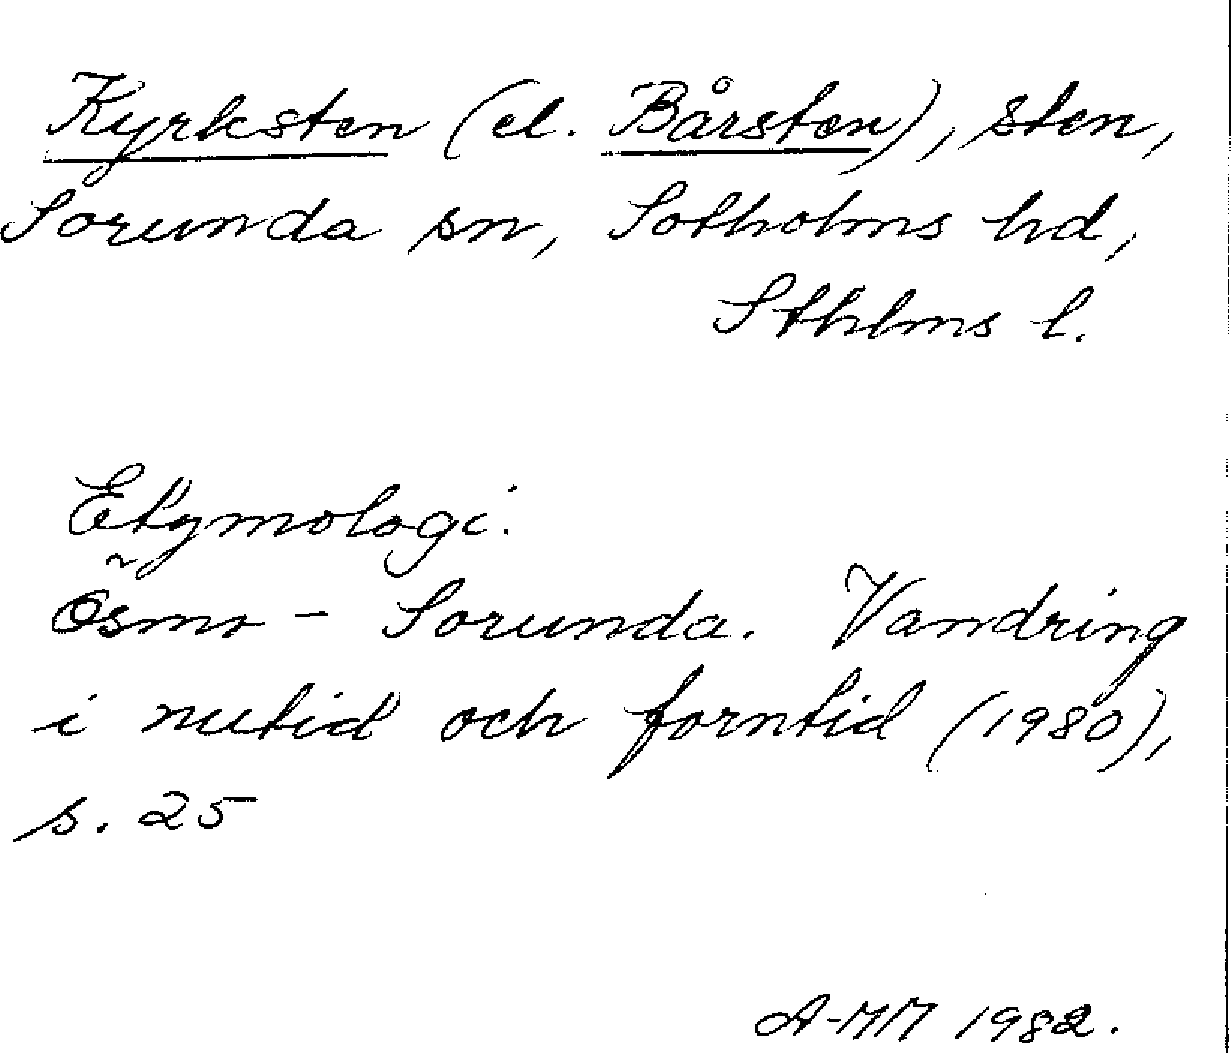 Kyrksten (el. Bårsten), sten,
Sorunda sn, Sotholms hd,
Sthlms l.
Etymologi.
Ösmo - Sorunda. Vandring
i nutid och forntid (1980),
s. 25
A-MM 1982.